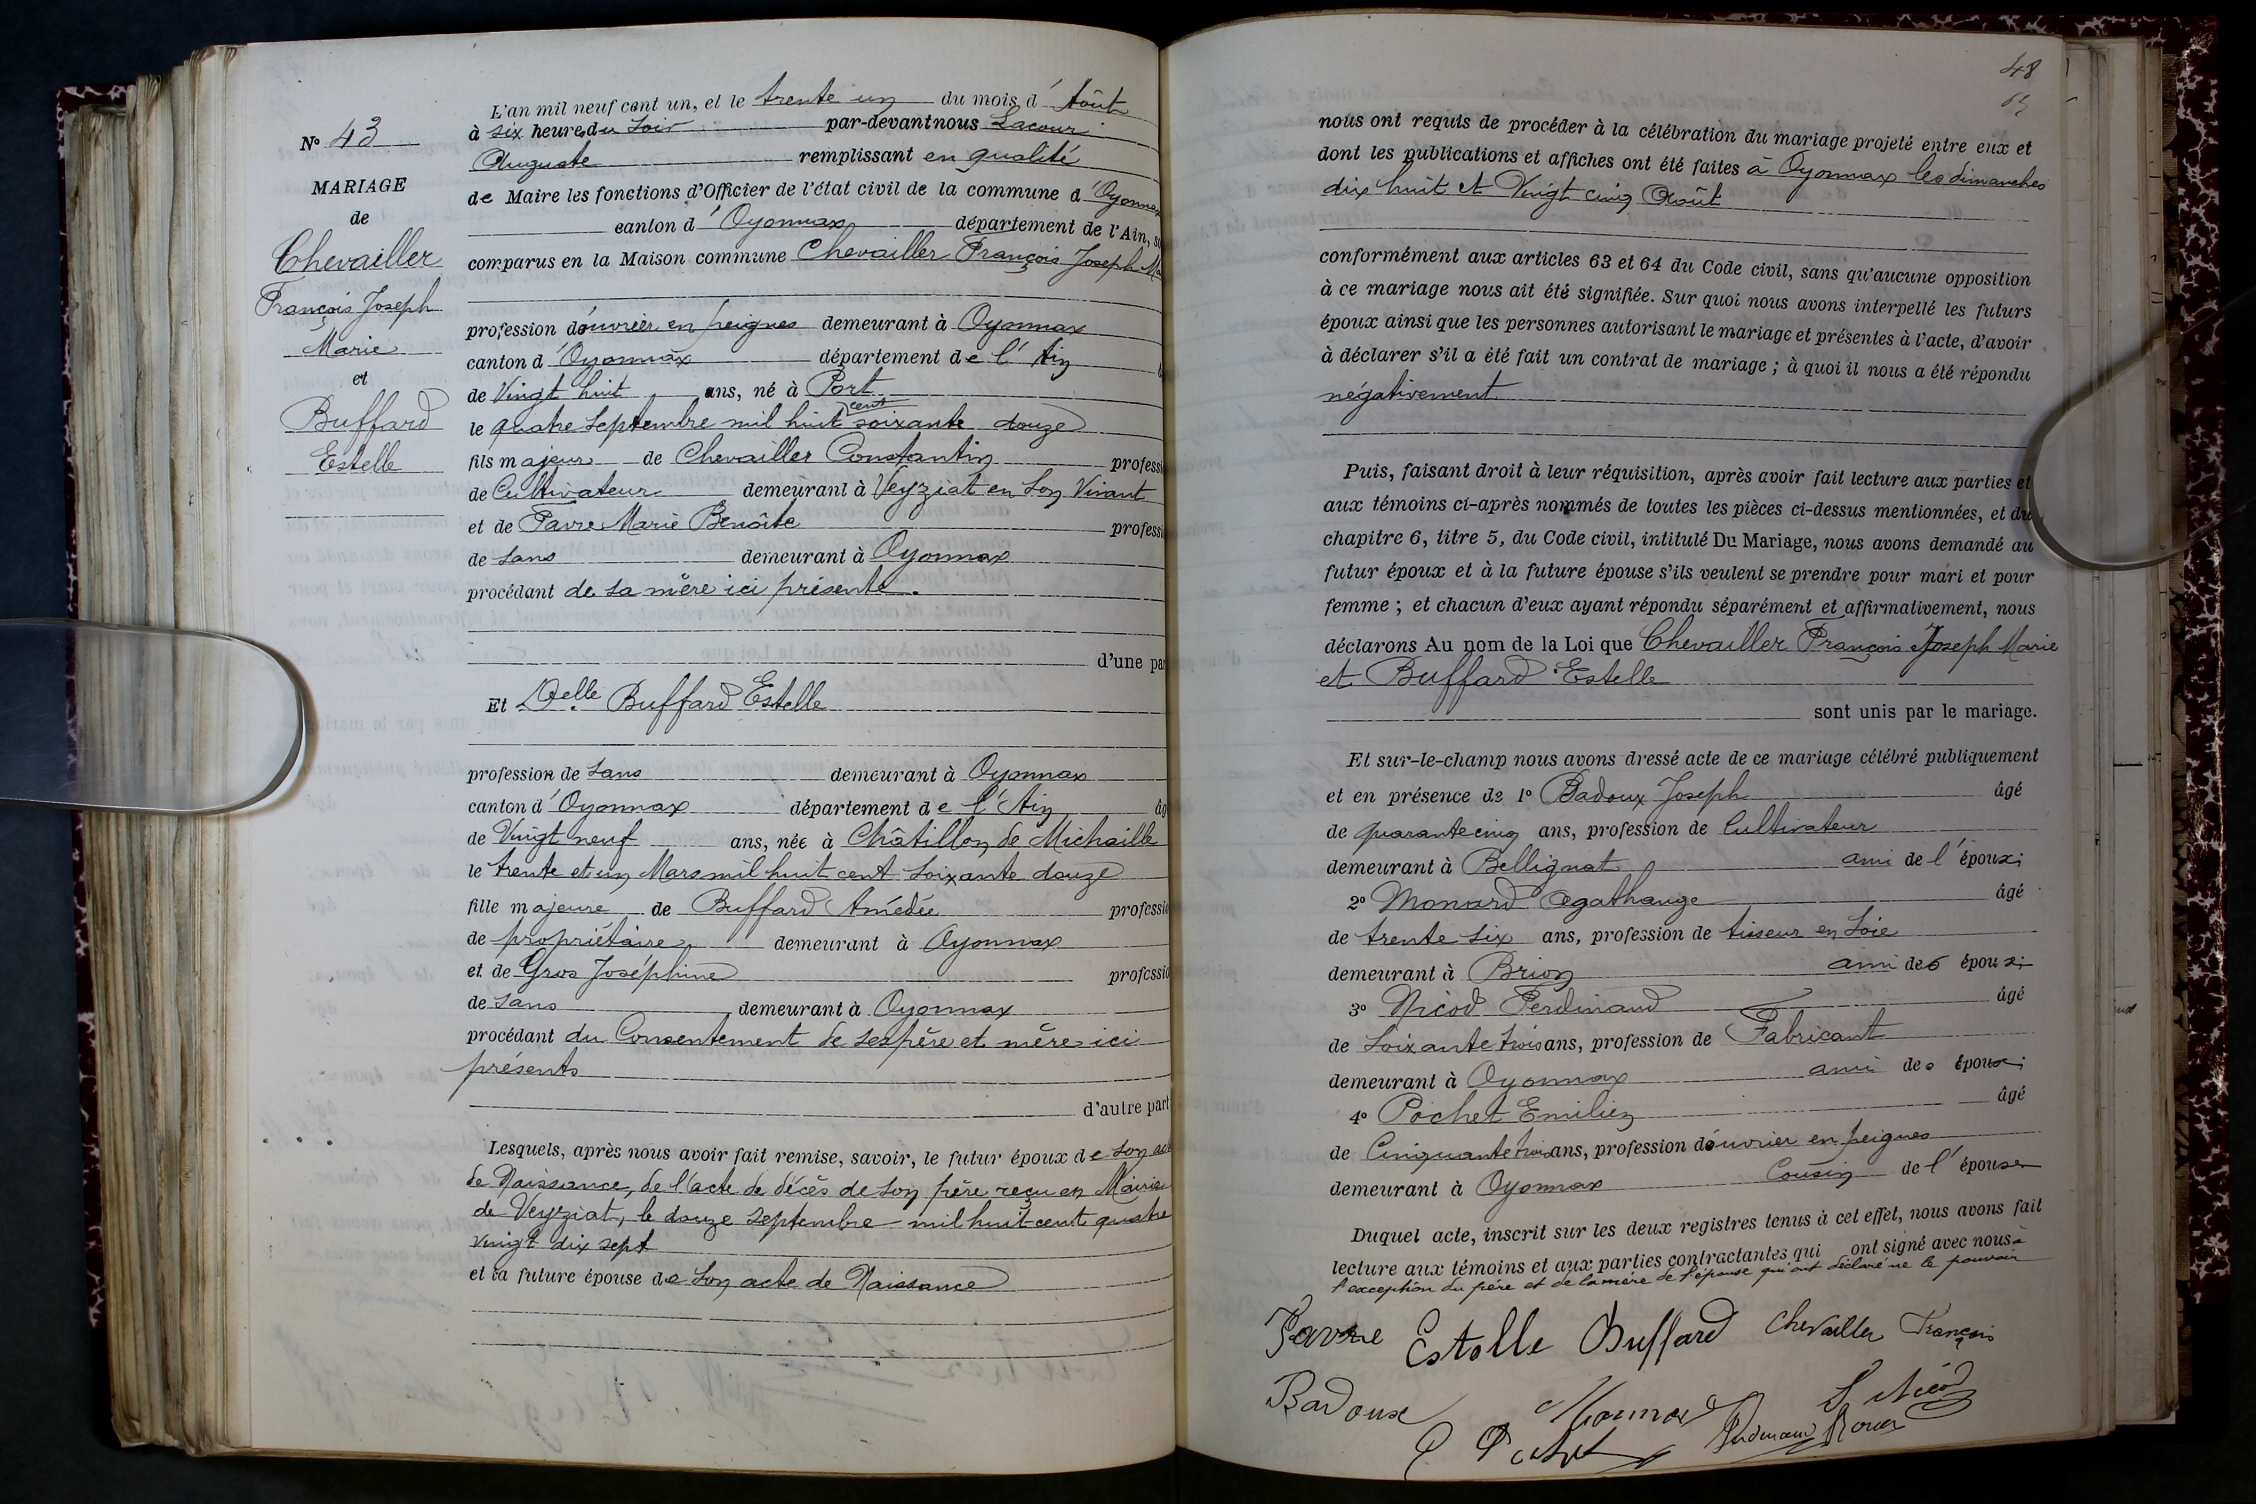 N° 43
MARIAGE
de
Chevailler
François Joseph
Marie
et
Buffard
Estelle
L'an mil neuf cent un, et le trente un du mois d' Août
à six heures du soir par-devant nous Lacour
Auguste remplissant en qualité
de Maire les fonctions d'Officier de l'état civil de la commune d' Oyonnax
canton d' Oyonnax département de l'Ain, so
comparus en la Maison commune Chevailler François Joseph Ma
profession d'ouvrier en peignes demeurant à Oyonnax
canton d' Oyonnax département de l' Ain
de Vingt huit ans, né à Port
le quatre Septembre mil huit cent soixante douze
fils majeur de Chevailler Constantin professi
de Cultivateur demeurant à Veyziat en son Vivant
et de Favre Marie Benoîte professi
de sans demeurant à Oyonnax
procédant de sa mère ici présente.
d'une par
Et Delle Buffard Estelle
profession de sans demeurant à Oyonnax
canton d' Oyonnax département de l' Ain âg
de Vingt neuf ans, née à Châtillon de Michaille
le trente et un Mars mil huit cent soixante douze
fille majeure de Buffard Amédée professio
de propriétaire demeurant à Oyonnax
et de Gros Joséphine professio
de sans demeurant à Oyonnax
procédant du Consentement de ses père et mère ici
présents
d'autre part
Lesquels, après nous avoir fait remise, savoir, le futur époux de son act
de Naissance, de l'acte de décès de son père reçu en Mairie
de Veyziat, le douze Septembre mil huit cent quatre
vingt dix sept
et la future épouse de son acte de Naissance
48
nous ont requis de procéder à la célébration du mariage projeté entre eux et
dont les publications et affiches ont été faites à Oyonnax les dimanches
dix huit et Vingt cinq Août
conformément aux articles 63 et 64 du Code civil, sans qu'aucune opposition
à ce mariage nous ait été signifiée. Sur quoi nous avons interpellé les futurs
époux ainsi que les personnes autorisant le mariage et présentes à l'acte, d'avoir
à déclarer s'il a été fait un contrat de mariage ; à quoi il nous a été répondu
négativement
Puis, faisant droit à leur réquisition, après avoir fait lecture aux parties et
aux témoins ci-après nommés de toutes les pièces ci-dessus mentionnées, et du
chapitre 6, titre 5, du Code civil, intitulé Du Mariage, nous avons demandé au
futur époux et à la future épouse s'ils veulent se prendre pour mari et pour
femme ; et chacun d'eux ayant répondu séparément et affirmativement, nous
déclarons Au nom de la Loi que Chevailler François Joseph Marie
et Buffard Estelle
sont unis par le mariage.
Et sur-le-champ nous avons dressé acte de ce mariage célébré publiquement
et en présence de 1° Badoux Joseph âgé
de quarante cinq ans, profession de Cultivateur
demeurant à Bellignat ami de l' époux;
2° Monard Agathange âgé
de trente six ans, profession de tisseur en Soie
demeurant à Brion ami des époux;
3° Nicod Ferdinand âgé
de Soixante trois ans, profession de Fabricant
demeurant à Oyonnax ami des époux;
4° Pochet Emilien âgé
de Cinquante trois ans, profession d'ouvrier en peignes
demeurant à Oyonnax Cousin de l' épouse
Duquel acte, inscrit sur les deux registres tenus à cet effet, nous avons fait
lecture aux témoins et aux parties contractantes qui ont signé avec nous à
l'exception du père et de la mère de l'épouse qui ont déclaré ne le pouvoir
Favre Estelle Buffard Chevailler François
Badoux Monnard F Nicod
Pochet